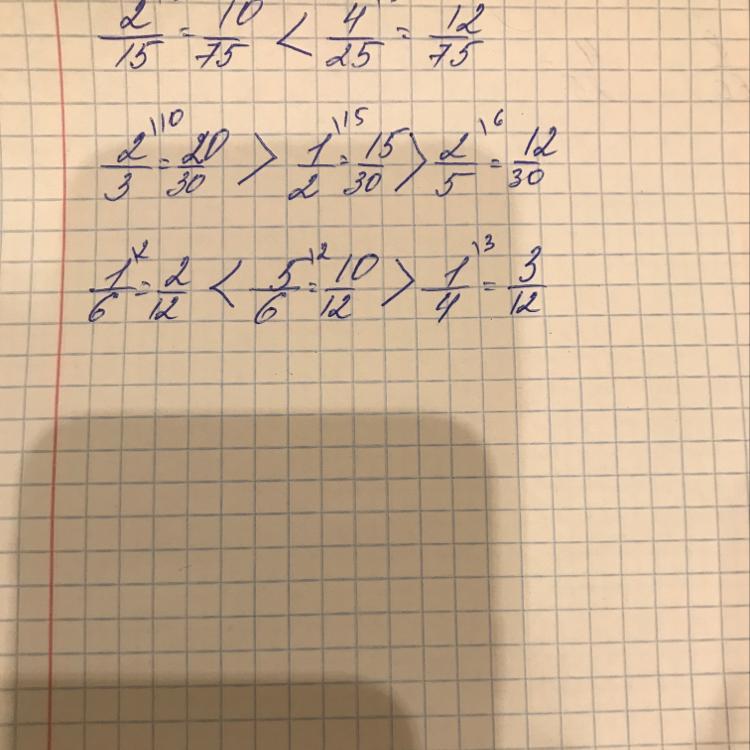 2/15 = 10/75 < 4/25 = 12/75
2/3 \10 = 20/30 > 1/2 \15 = 15/30 > 2/5 \6 = 12/30
1/6 \2 = 2/12 < 5/6 \2 = 10/12 > 1/4 \3 = 3/12